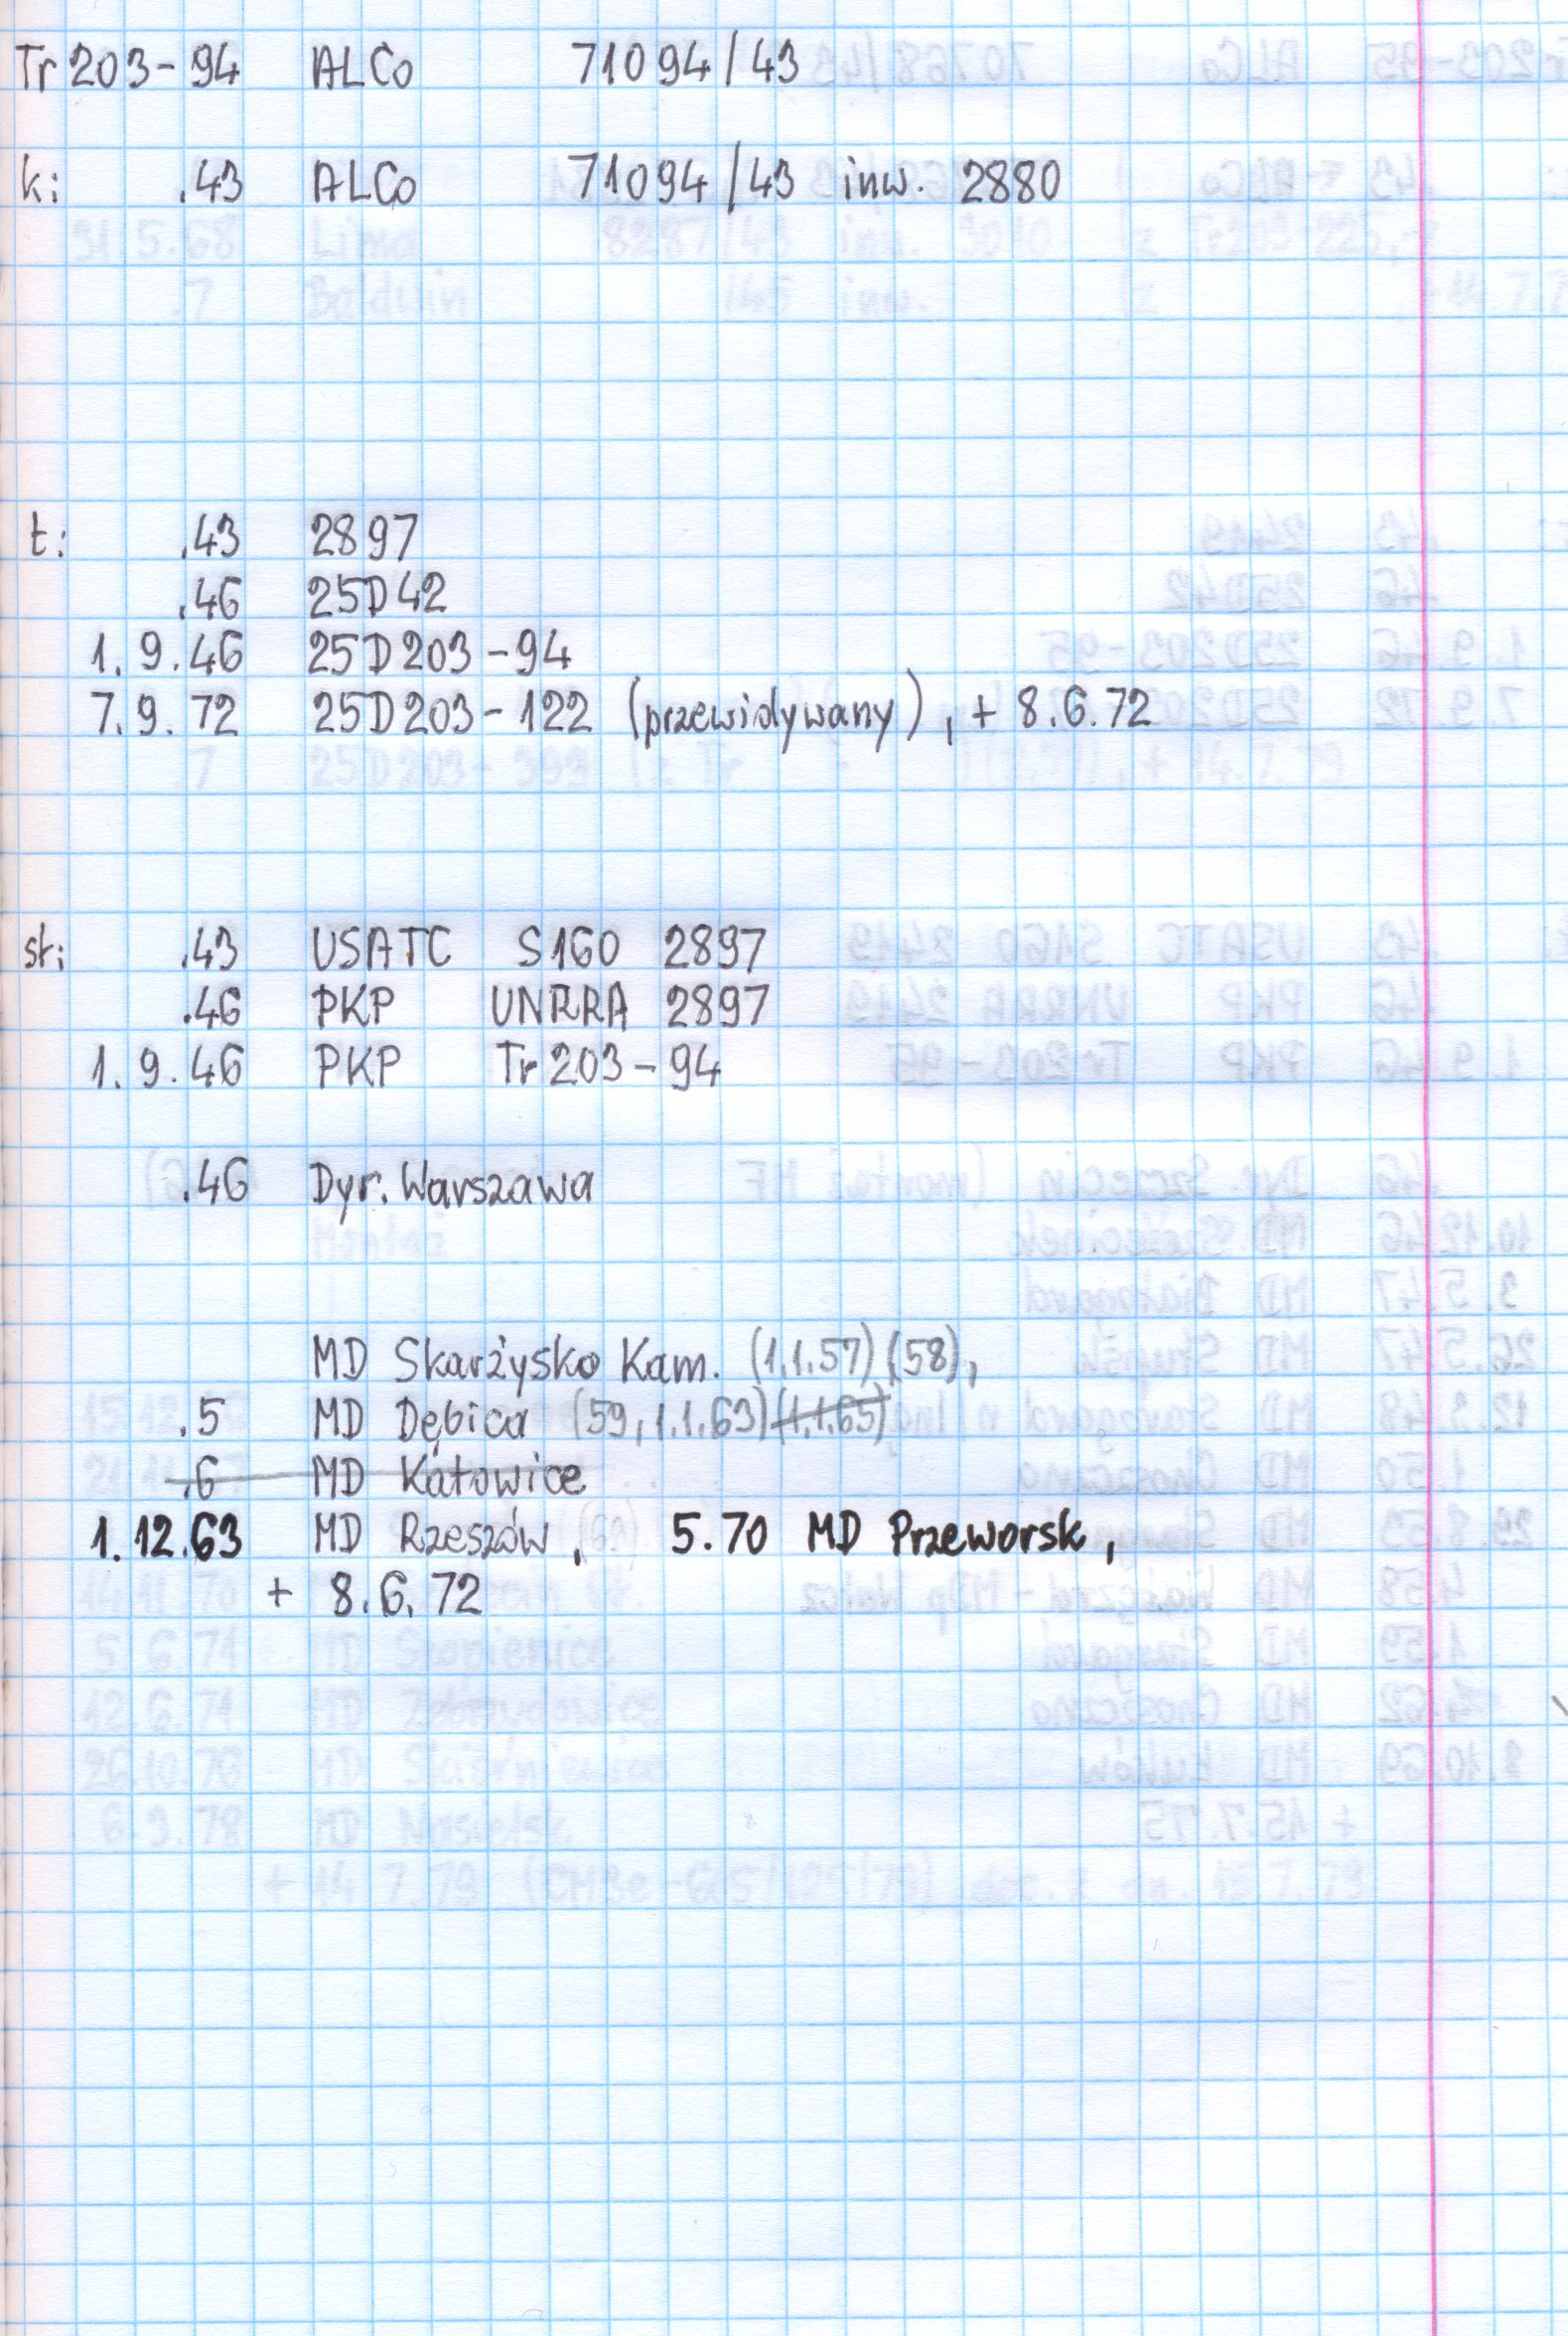 Tr 203-94 ALCo 71094/43
k: .43 ALCo 71094/43 inw. 2880
t: .43 2897
.46 25D42
1.9.46 25D203-94
7.9.72 25D203-122 (przewidywany), + 8.6.72
st: .43 USATC S160 2897
.46 PKP UNRRA 2897
1.9.46 PKP Tr 203-94
.46 Dyr. Warszawa
MD Skarżysko Kam. (1.1.57) (58),
.5 MD Dębica (59, 1.1.63) (1.1.65)
.6 MD Katowice
1.12.63 MD Rzeszów, 5.70 MD Przeworsk,
+ 8.6.72